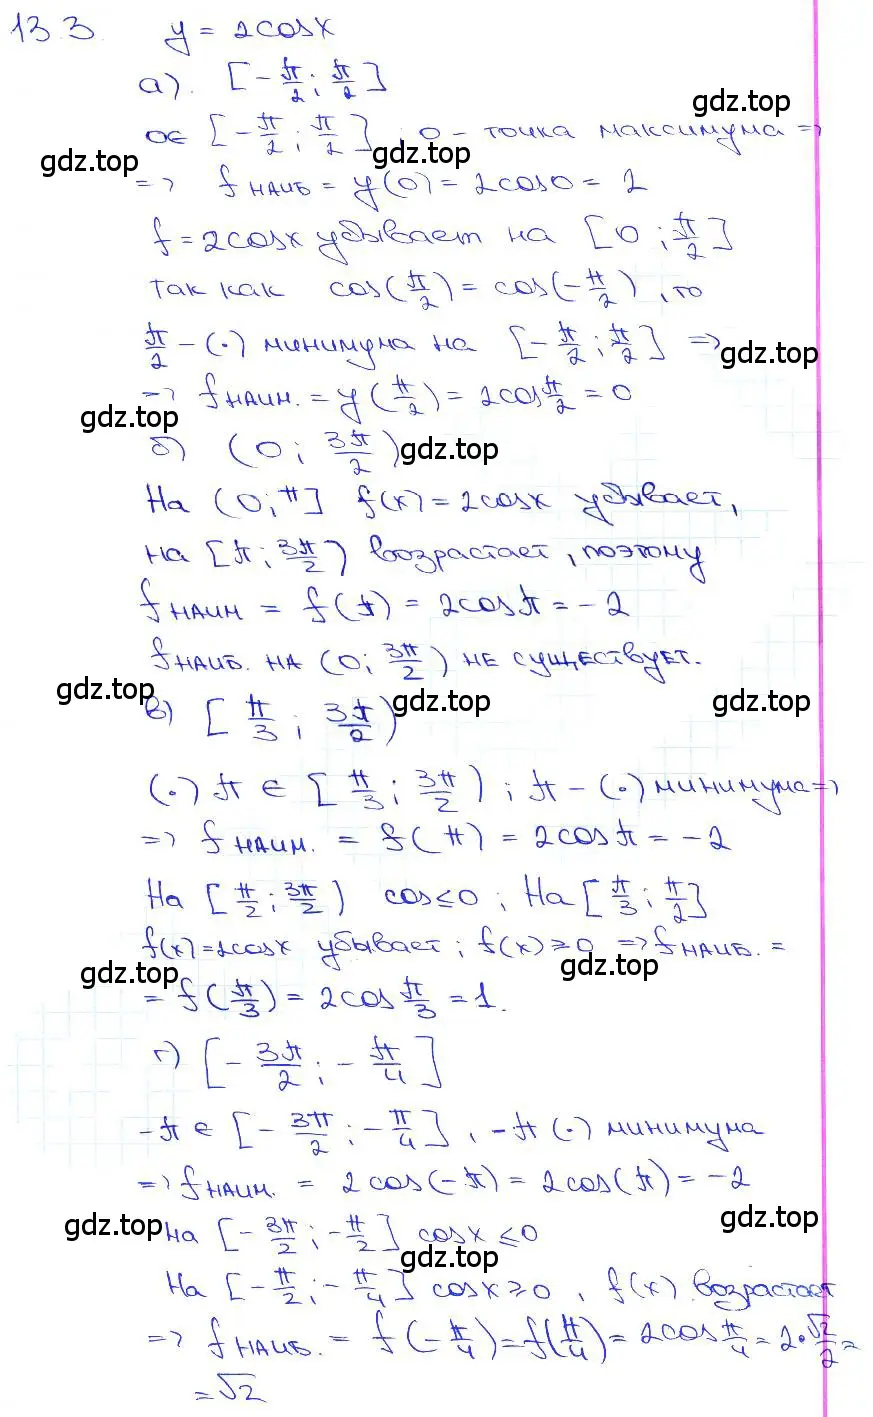 13.3 y = 2cosx
а). [-π/2; π/2]
0∈ [-π/2; π/2], 0 - точка максимума =>
gdz.top gdz.top gdz.top
=> f наиб = y(0) = 2cos0 = 2
f = 2cosx убывает на [0; π/2]
так как cos(π/2) = cos(-π/2), то
π/2 - (·) минимума на [-π/2; π/2] =>
gdz.top
=> f наим. = y(π/2) = 2cosπ/2 = 0
gdz.top
б) (0; 3π/2)
gdz.top
На (0; π] f(x) = 2cosx убывает,
на [π; 3π/2) возрастает, поэтому
f наим = f(π) = 2cosπ = -2
f наиб. на (0; 3π/2) не существует.
gdz.top gdz.top gdz.top
в) [π/3; 3π/2)
(·) π ∈ [π/3; 3π/2); π - (·) минимума =>
=> f наим. = f(π) = 2cosπ = -2
На [π/2; 3π/2) cos≤0; На [π/3; π/2]
f(x) = 2cosx убывает; f(x) ≥ 0 => f наиб. =
gdz.top gdz.top
= f(π/3) = 2cosπ/3 = 1.
г) [-3π/2; -π/4]
-π ∈ [-3π/2; -π/4], -π (·) минимума
=> f наим. = 2cos(-π) = 2cos(π) = -2
gdz.top gdz.top
На [-3π/2; -π/2] cosx ≤ 0
gdz.top
На [-π/2; -π/4] cosx ≥ 0, f(x) возрастает
=> f наиб. = f(-π/4) = f(π/4) = 2cosπ/4 = 2·√2/2 =
= √2